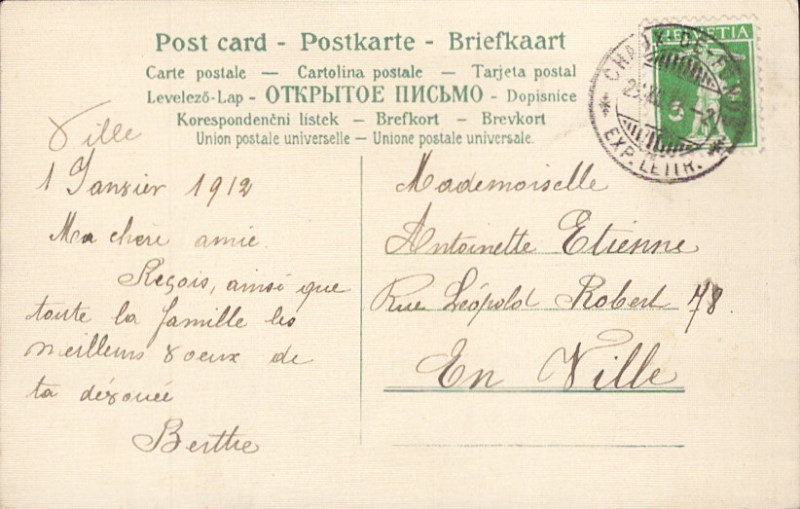 Post card - Postkarte - Briefkaart
Carte postale — Cartolina postale — Tarjeta postal
Levelező-Lap - ОТКРЫТОЕ ПИСЬМО - Dopisnice
Korespondenční listek — Brefkort — Brevkort
Union postale universelle — Unione postale universale.
HELVETIA
5
CHAUX-DE-FONDS
EXP. LETTR.
Ville
1 Janvier 1912
Ma chère amie
Reçois, ainsi que
toute la famille les
meilleurs voeux de
ta dévouée
Berthe
Mademoiselle
Antoinette Etienne
Rue Léopold Robert 78.
En Ville